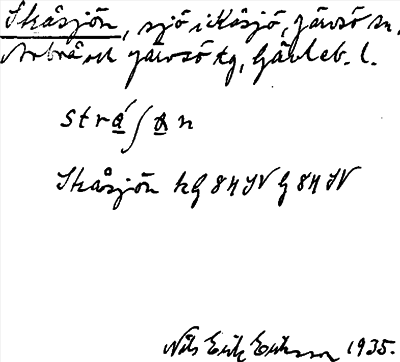 Skåsjön, sjö i Kåsjö, Järvsö sn,
Arbrå och Järvsö tg, Gävleb. l.
strá ʃ ɑ n
Skåsjön kG 84 SV G 84 SV
Nils Erik Eriksson 1935.